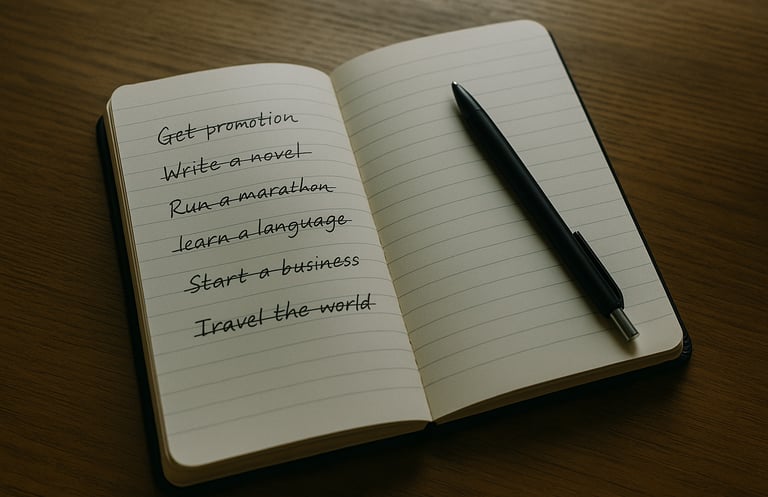 Get promotion
Write a novel
Run a marathon
learn a language
Start a business
Travel the world